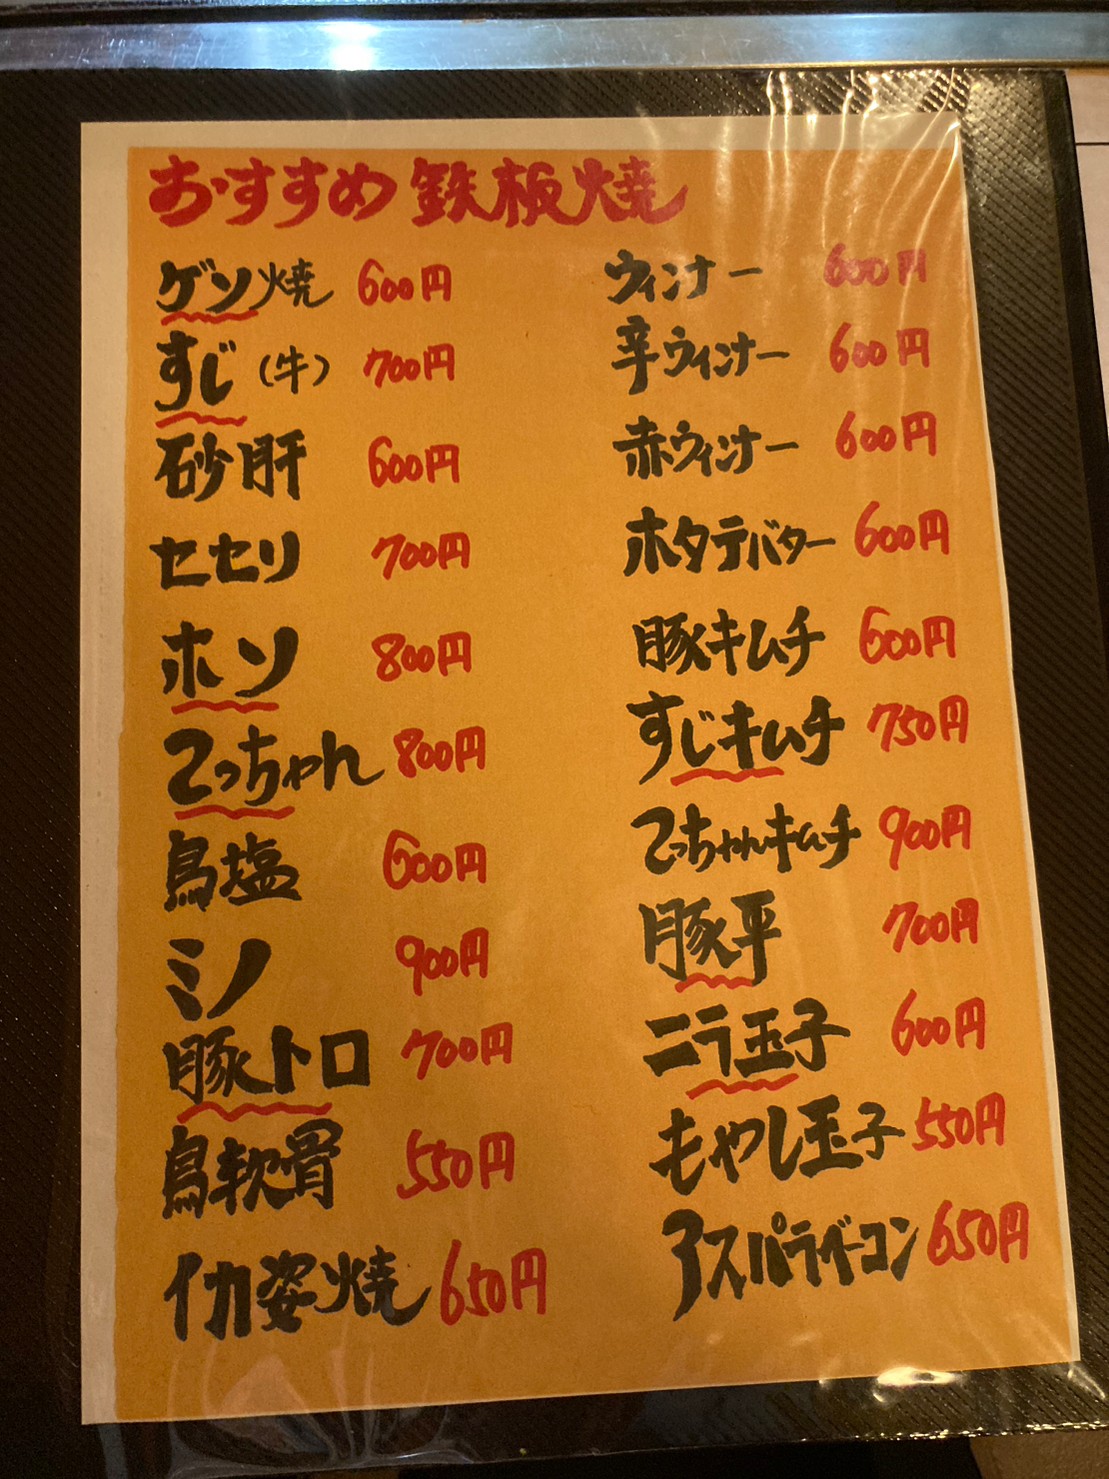 おすすめ鉄板焼
ゲソ焼 600円
すじ(牛) 700円
砂肝 600円
セセリ 700円
ホソ 800円
てっちゃん 800円
鳥塩 600円
ミノ 900円
豚トロ 700円
鳥軟骨 550円
イカ姿焼 650円
ウィンナー 600円
辛ウィンナー 600円
赤ウィンナー 600円
ホタテバター 600円
豚キムチ 600円
すじキムチ 750円
てっちゃんキムチ 900円
豚平 700円
ニラ玉子 600円
もやし玉子 550円
アスパラベーコン 650円